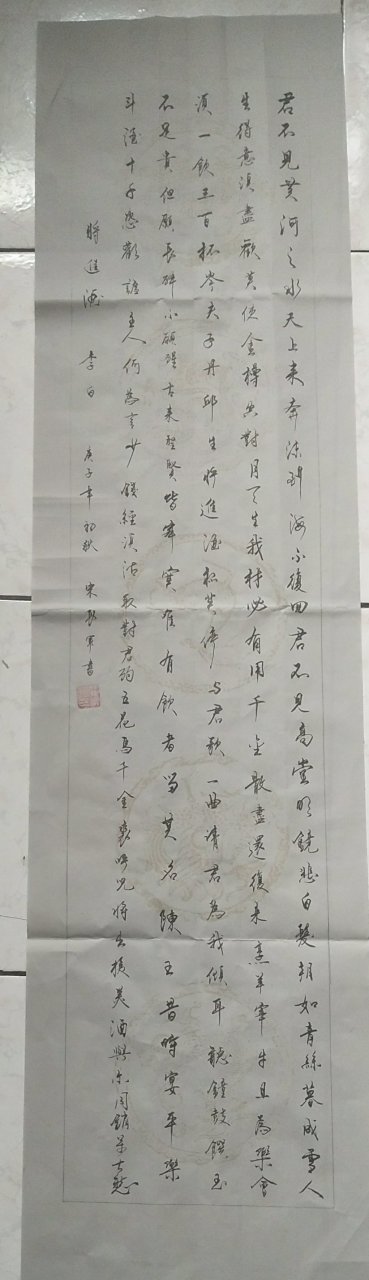 君不見黃河之水天上来奔流到海不復回君不見高堂明鏡悲白髮朝如青絲暮成雪人
生得意須盡歡莫使金樽空對月天生我材必有用千金散盡還復来烹羊宰牛且為樂會
須一飲三百杯岑夫子丹邱生將進酒杯莫停与君歌一曲請君為我傾耳聽鐘鼓饌玉
不足貴但願長醉不願醒古来聖賢皆寂寞唯有飲者留其名陳王昔時宴平樂
斗酒十千恣歡謔主人何為言少錢經須沽取對君酌五花馬千金裘呼兒將出換美酒與尔同銷萬古愁
將進酒 李白 庚子年初秋 宋軍書